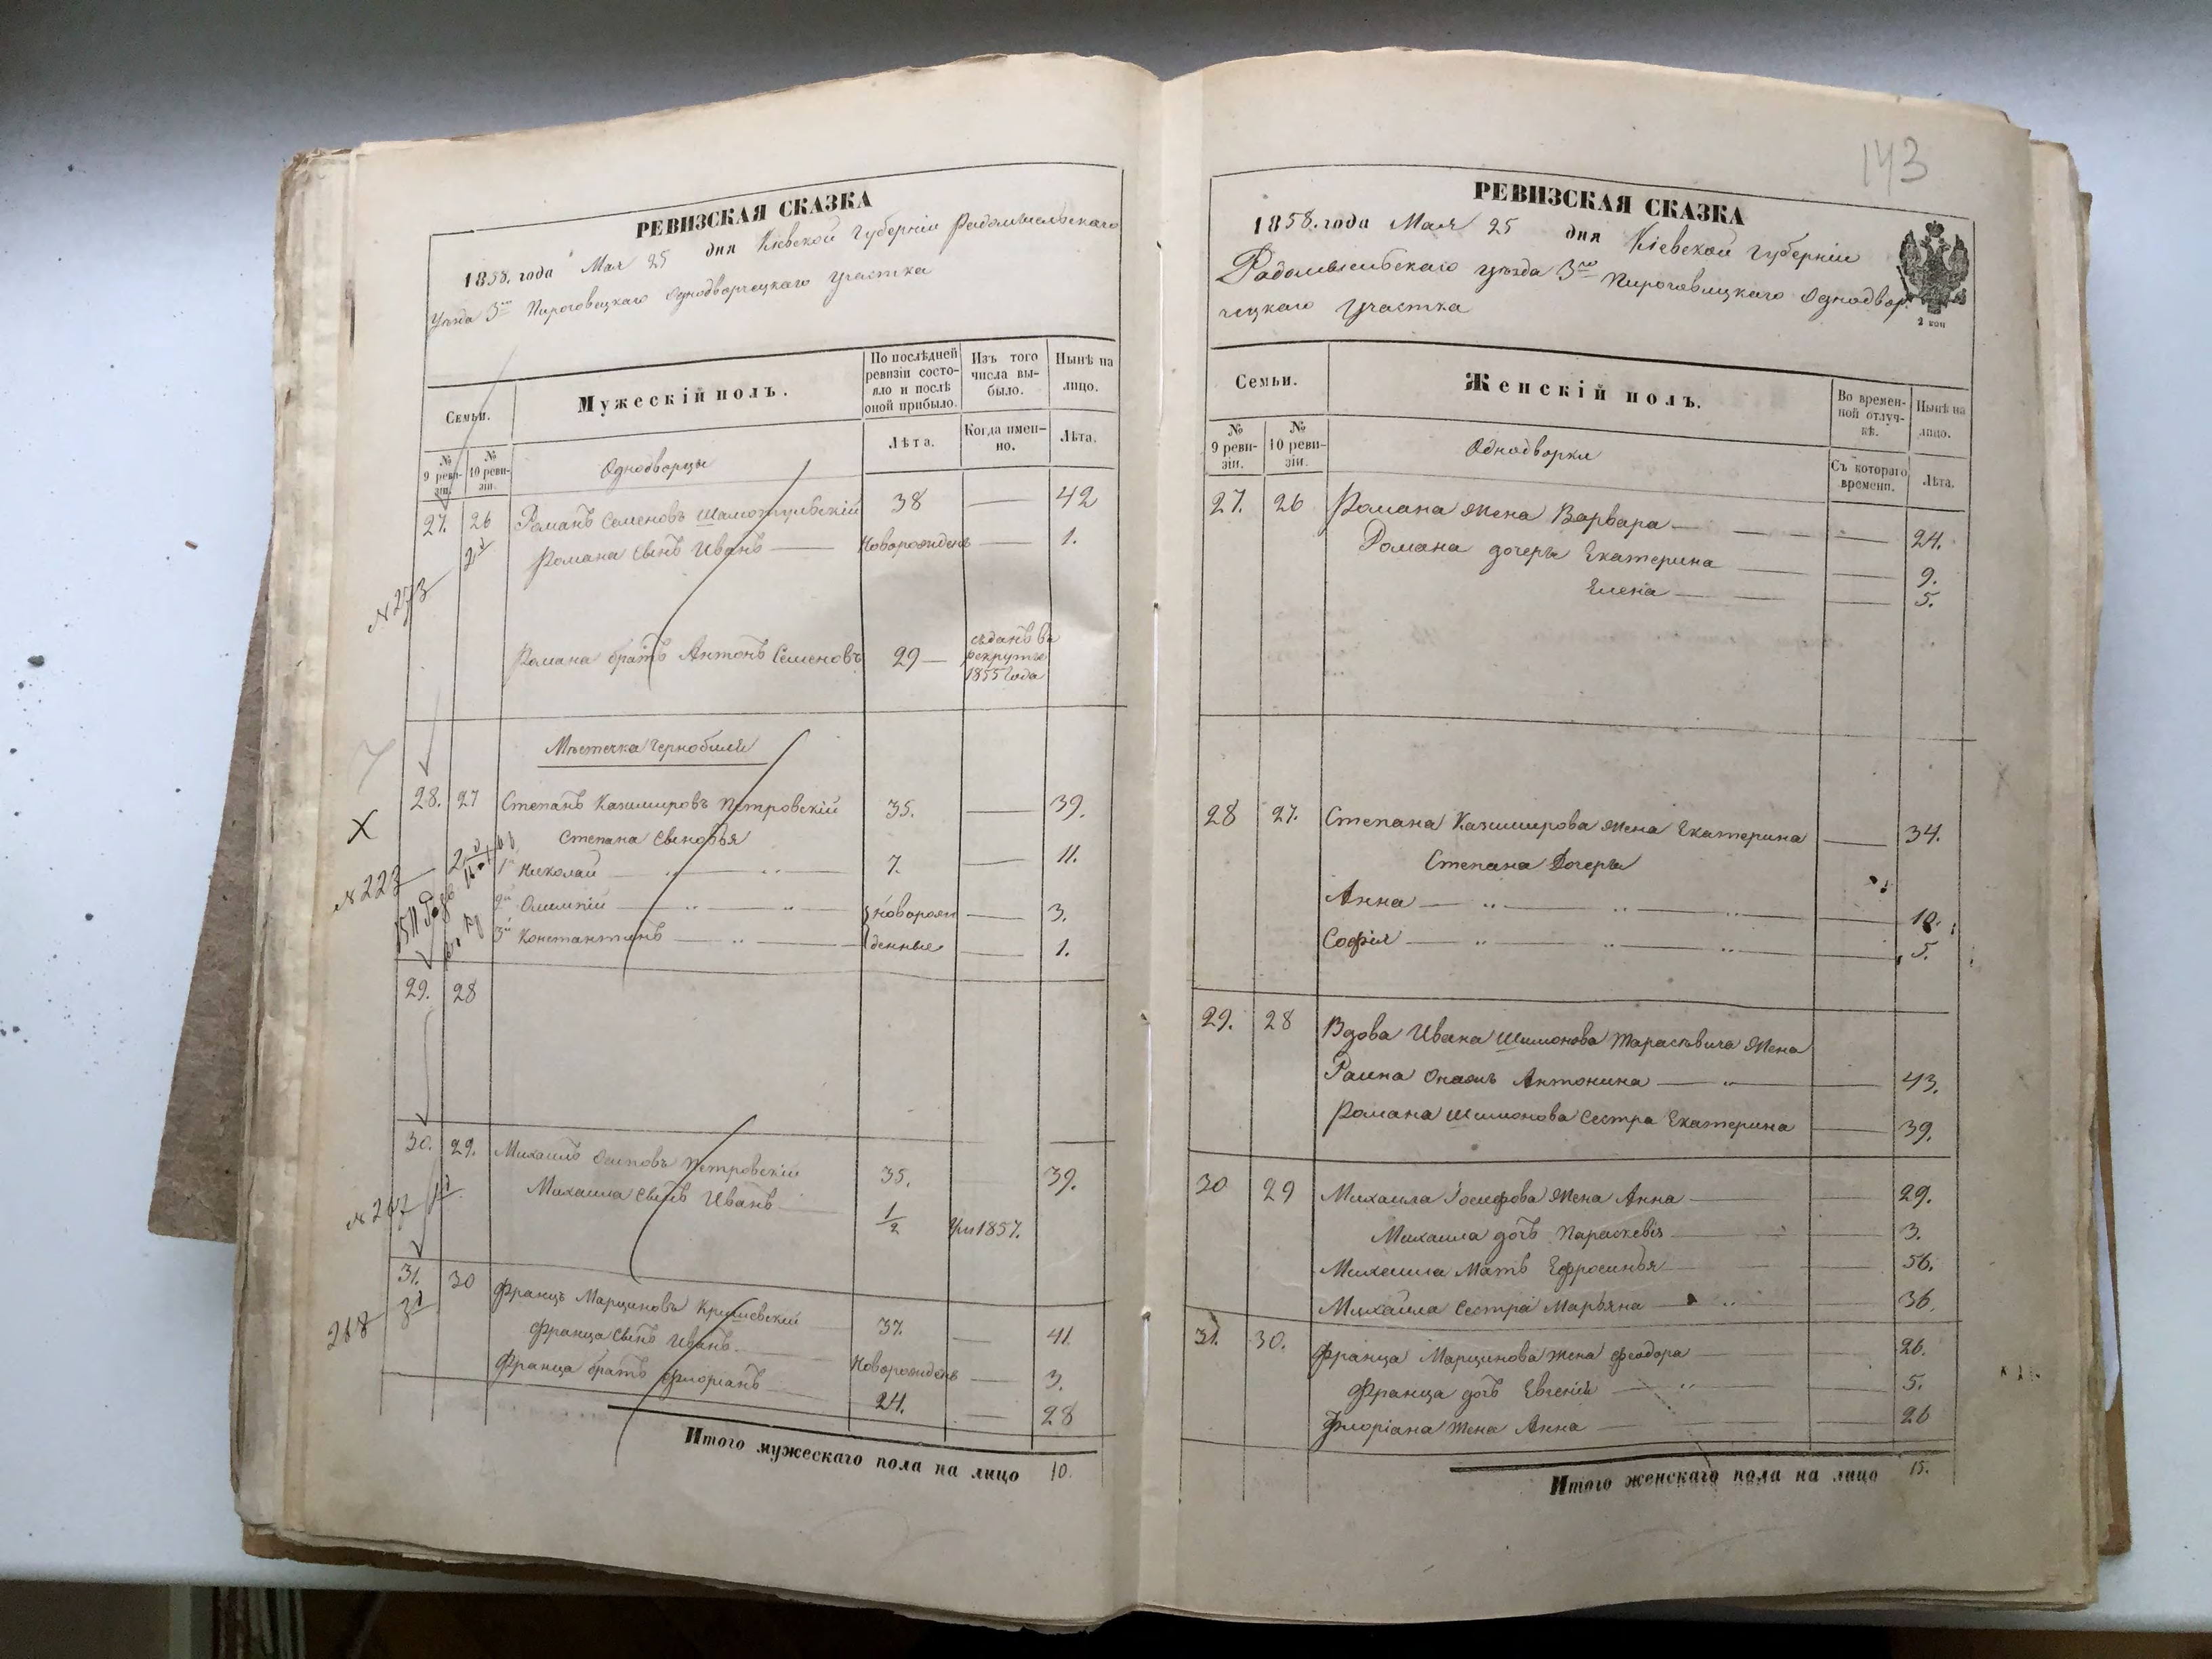 РЕВИЗСКАЯ СКАЗКА
1858. года Мая 25 дня Кіевской Губерніи Радомысльскаго
Уѣзда 3го Пироговецкаго Однодворческаго Участка
Семьи.
Мужескій полъ.
По послѣдней ревизіи состояло и послѣ оной прибыло.
Изъ того числа выбыло.
Нынѣ на лицо.
№ 9 ревизіи.
№ 10 ревизіи.
Однодворцы
Лѣта.
Когда именно.
Лѣта.
27. 26 Романъ Семеновъ 38 — 42
Романа Сынъ Иванъ — Новорожденъ — 1.
№ 273
Романа братъ Антонъ Семеновъ 29 — сданъ въ рекруты 1855 Года
Мѣстечка Чернобыля
28. 27 Степанъ Казимировъ Петровскій 35. — 39.
Степана Сыновья
№ 223
1й Николай — 7. — 11.
2й Олимпій — новорож — 3.
3й Константинъ — денные — 1.
29. 28
30. 29. Михаилъ Осиповъ Петровскій 35. 39.
Михаила Сынъ Иванъ 1/2 Ум 1857.
31. 30 Францъ Марциновъ 37. — 41
268
Франца Сынъ Иванъ Новорожденъ — 3.
Франца братъ Флоріанъ 24. — 28
Итого мужескаго пола на лицо 10.
143
РЕВИЗСКАЯ СКАЗКА
1858. года Мая 25 дня Кіевской Губерніи
Радомысльскаго уѣзда 3го Пироговецкаго Однодвор
чецкаго Участка
2 коп
Семьи.
Женскій полъ.
Во временной отлучкѣ.
Нынѣ на лицо.
№ 9 ревизіи.
№ 10 ревизіи.
Однодворки
Съ котораго времени.
Лѣта.
27. 26 Романа Жена Варвара — — 24.
Романа дочеры Екатерина — — 9.
Елена — — 5.
28 27. Степана Казимирова Жена Екатерина — 34.
Степана Дочеры
Анна — — 10.
Софія — — 5.
29. 28 Вдова Ивана Шимонова Тарасевича Жена
Антонина — — 43.
Романа Шимонова Сестра Екатерина — 39.
30 29 Михаила Іосифова Жена Анна — 29.
Михаила дочь Параскевія — 3.
Михаила Мать Ефросинья — 56.
Михаила Сестра Марьяна — 36.
31. 30. Франца Марцинова Жена Феодора — 26.
Франца дочь Евгенія — 5.
Флоріана Жена Анна — 26
Итого женскаго пола на лицо 15.